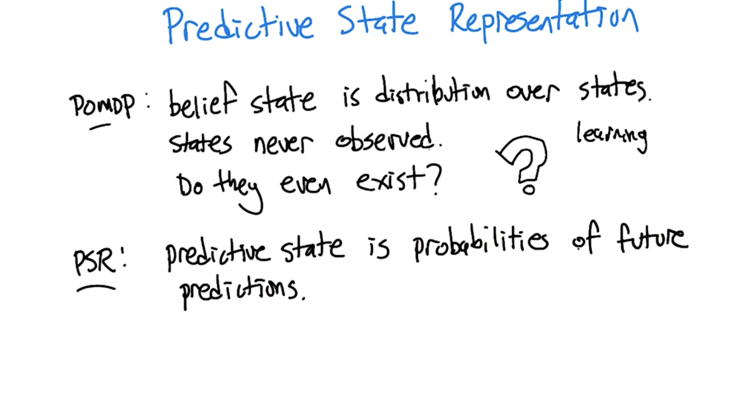 Predictive State Representation
POMDP: belief state is distribution over states.
states never observed.
learning
Do they even exist?
?
PSR: predictive state is probabilities of future
predictions.